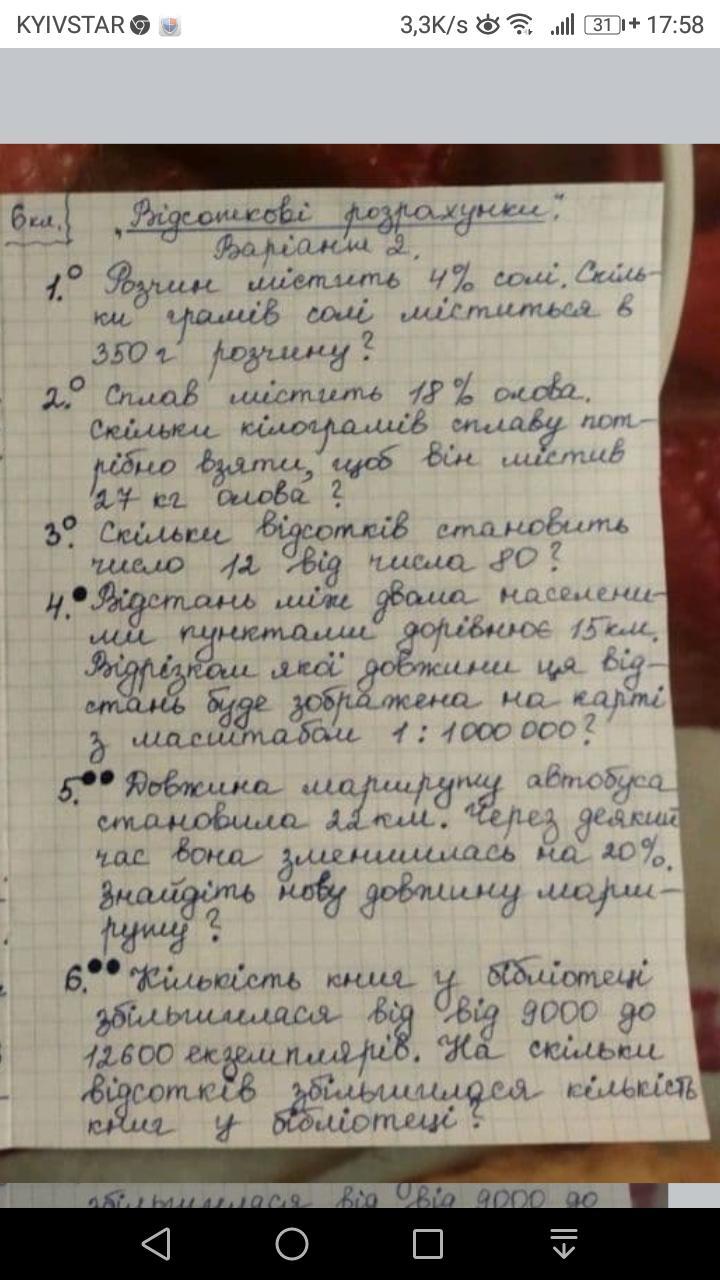 KYIVSTAR 3,3K/s 31 17:58
6 кл. „Відсоткові розрахунки".
Варіант 2.
1.° Розчин містить 4% солі. Скіль-
ки грамів солі міститься в
350 г розчину?
2.° Сплав містить 18% олова.
Скільки кілограмів сплаву пот-
рібно взяти, щоб він містив
27 кг олова?
3.° Скільки відсотків становить
число 12 від числа 80?
4.• Відстань між двома населени-
ми пунктами дорівнює 15 км.
Відрізком якої довжини ця від-
стань буде зображена на карті
з масштабом 1 : 1000 000?
5.•• Довжина маршруту автобуса
становила 22 км. Через деякий
час вона зменшилась на 20%.
Знайдіть нову довжину марш-
руту?
6.•• Кількість книг у бібліотеці
збільшилася від від 9000 до
12600 екземплярів. На скільки
відсотків збільшилася кількість
книг у бібліотеці?
збільшилася від від 9000 до